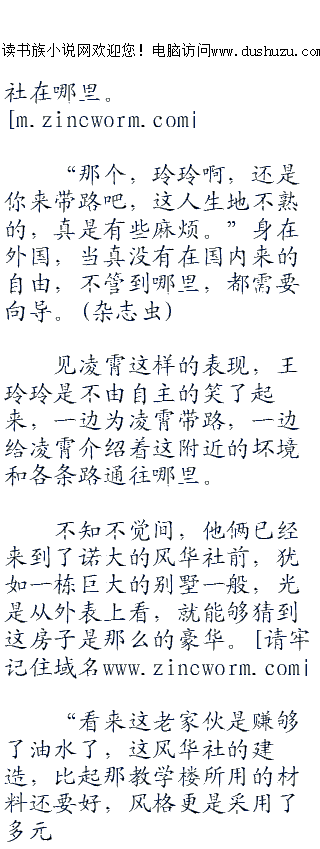 读书族小说网欢迎您！电脑访问www.dushuzu.com
社在哪里。
[m.zincworm.com|
“那个，玲玲啊，还是
你来带路吧，这人生地不熟
的，真是有些麻烦。”身在
外国，当真没有在国内来的
自由，不管到哪里，都需要
向导。(杂志虫)
见凌霄这样的表现，王
玲玲是不由自主的笑了起
来，一边为凌霄带路，一边
给凌霄介绍着这附近的坏境
和各条路通往哪里。
不知不觉间，他俩已经
来到了诺大的风华社前，犹
如一栋巨大的别墅一般，光
是从外表上看，就能够猜到
这房子是那么的豪华。[请牢
记住域名www.zincworm.com|
“看来这老家伙是赚够
了油水了，这风华社的建
造，比起那教学楼所用的材
料还要好，风格更是采用了
多元